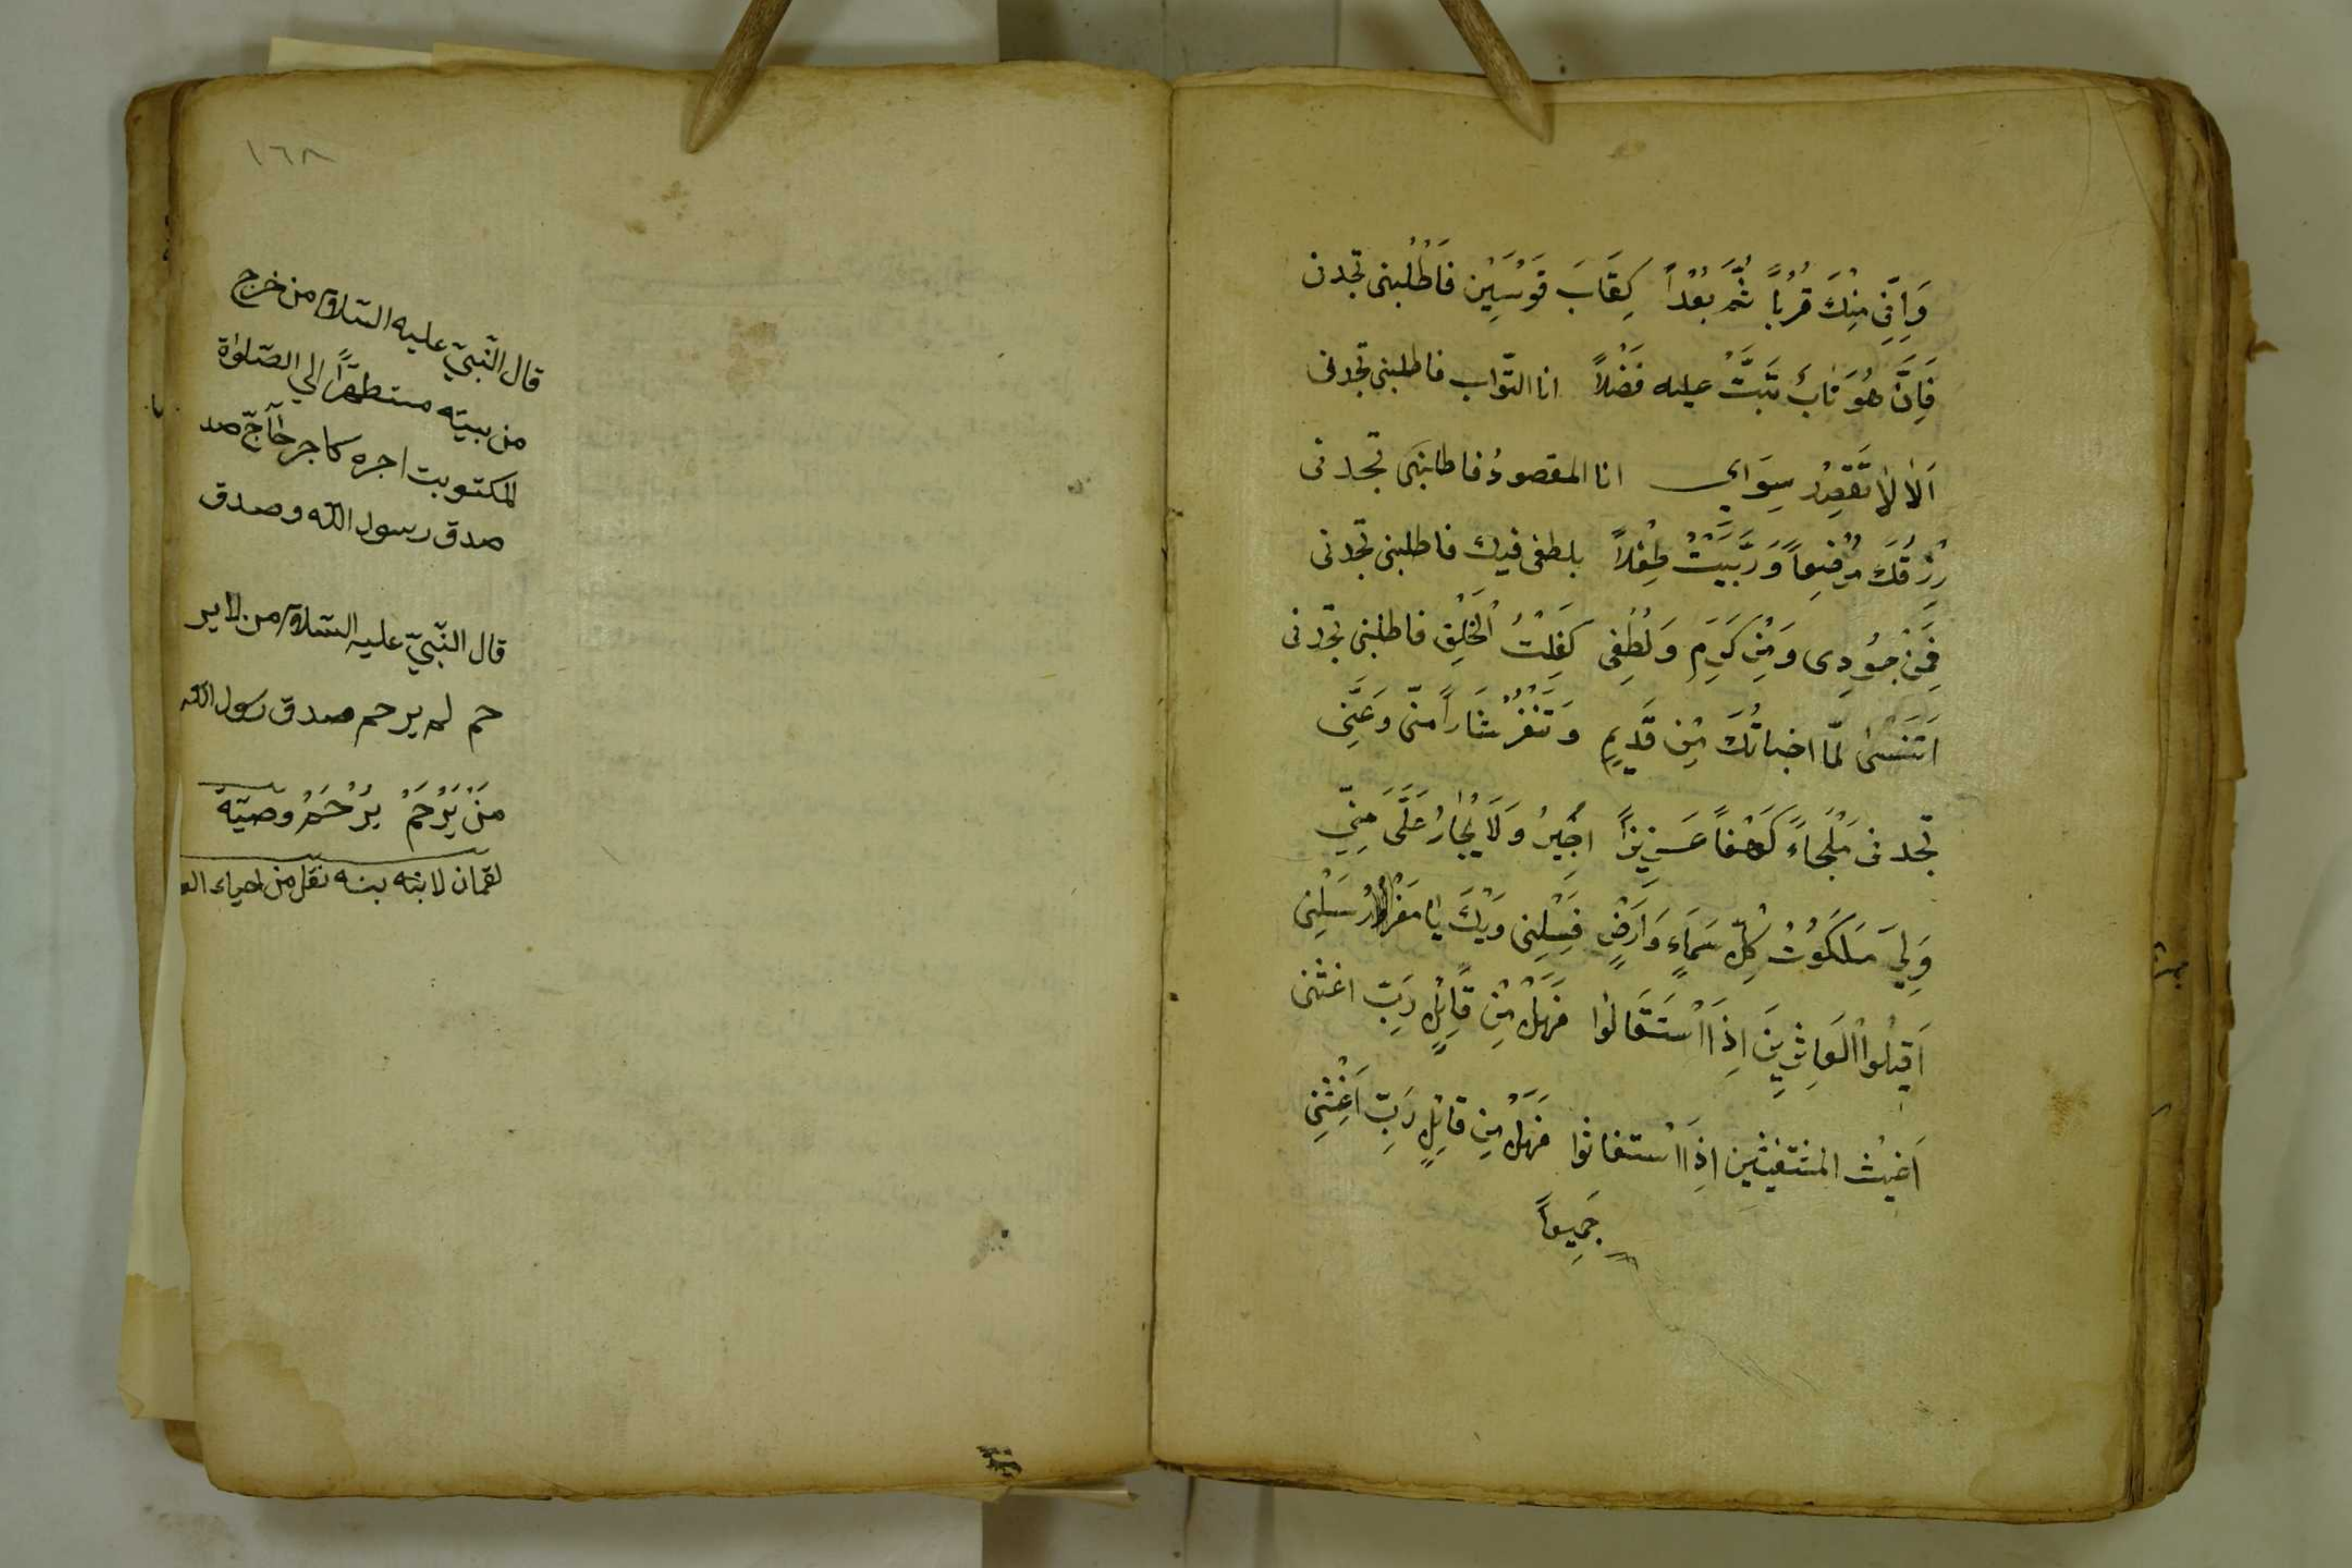 وَاِنِّى مِنْكَ قُرُبًا ثُمَّ بُعْدًا كِقَابَ قَوْسَيْنِ فَاطْلُبْنى تجدنى
فَاِنَّ هُوَ تَابَ تَبْتُ عليه فَضْلًا انا التوّاب فاطلبنى تجدنى
اَلَا لَا تَقْصِدْ سِوَاىِٕ انا المقصودُ فاطلبنى تجدنى
رَزَقْتُكَ مُرْضِعًا وَرَبَّيْتُ طِفْلًا بلطفى فيك فاطلبنى تجدنى
فَمِنْ جُودِى وَمِنْ كَرَمِ وَلُطْفِى كَفِلْتُ الْخَلْقِ فاطلبنى تجدنى
اَتَنْسٰى لمّا اخبأتُكَ مِنْ قَدِيمٍ وَتَنْفُرْ مِنّى وَعَنِّى
تجدنى مَلْجَاءً كَهْفًا عَزِيزًا اُجِيرُ وَلَا يُجَارُ عَلَىَّ مِنِّى
وَلِىَ مَلَكُوتُ كُلِّ سَمَاءٍ وَاَرْضٍ فَسِلْنِى وَيْكَ يا مغرور سَلْنِى
اَقِيْلُوا الْعَاثِرِينَ اِذَا اسْتَقَالُوا فَهَلْ مِنْ قَائِلٍ رَبِّ اغثنى
اَغِيْثُ المستغيثين اِذَا اسْتغاثوا فَهَلْ مِنْ قَائِلٍ رَبِّ اَغِثْنِى
جَمِيعًا
١٦٨
قال النّبيّ عليه السّلام من خرج
من بيته متطهرًا الي الصّلوٰة
المكتوبت اجره كاجر حآجّ صد
صدق رسول الله وصدق
قال النّبيّ عليه السّلام من لا ير
حم لم يرحم صدق رسول الله
مَنْ يَرْحَمْ يُرْحَمْ وصيّة
لقمان لابنه بنه نقل من احياء العـ